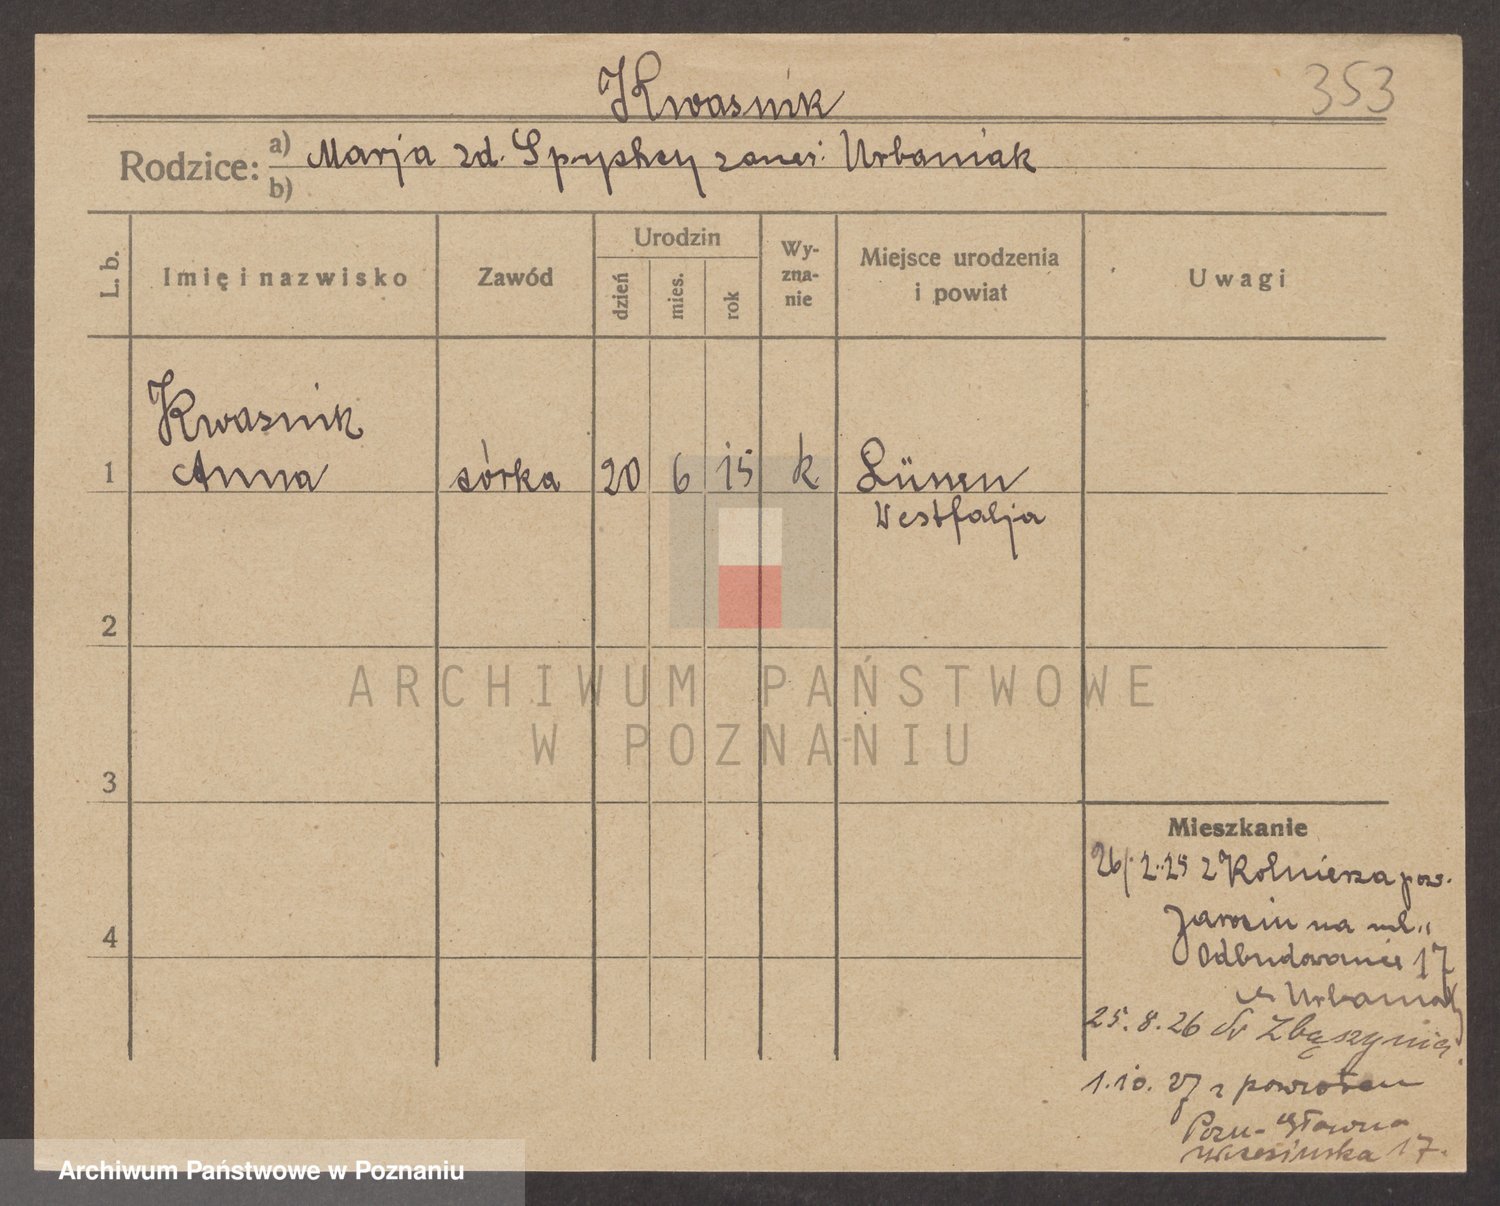 Kwasnik
353
Rodzice: a) Marja zd. Spryshcy zamęż. Urbaniak
b)
L. b.
Imię i nazwisko
Zawód
Urodzin
dzień
mies.
rok
Wy-
zna-
nie
Miejsce urodzenia
i powiat
Uwagi
Kwasnik
1 Anna córka 20 6 15 k Lünen
Westfalja
2
3
4
Mieszkanie
26/2.25 z Kolnierza pow.
Jarocin na ul.
Odbudowanie 17
u Urbaniak
25.8.26 do Zbąszynia
1.10.27 z powrotem
Pozn- Główna
Wrzesińska 17.
ARCHIWUM PAŃSTWOWE
W POZNANIU
Archiwum Państwowe w Poznaniu